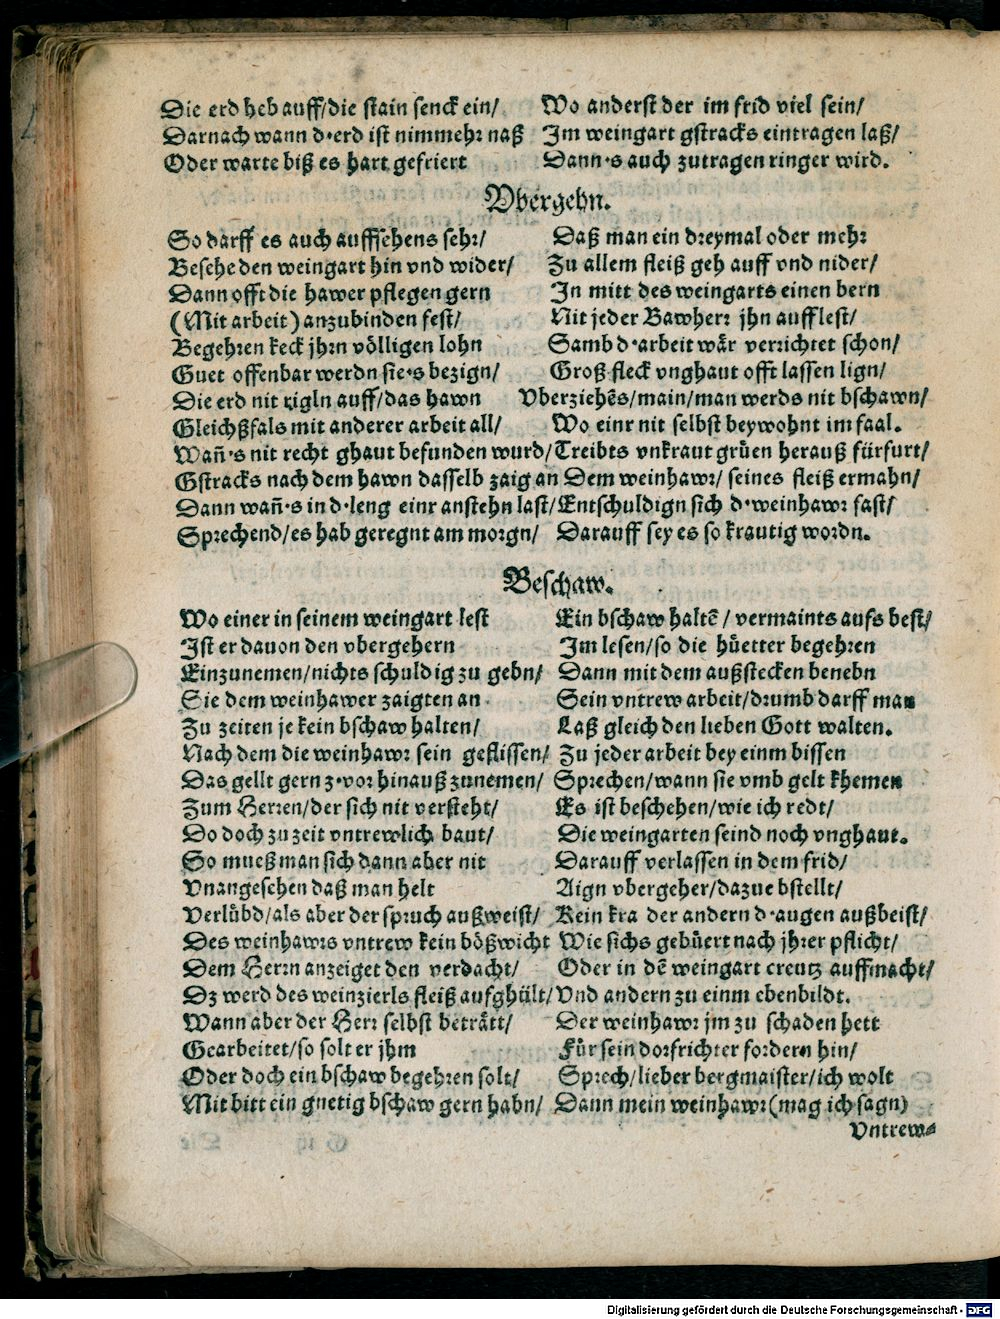 Die erd heb auff/die stain senck ein/ Wo anderst der im frid viel sein/
Darnach wann d'erd ist nimmehr naß Im weingart gstracks eintragen laß/
Oder warte biß es hart gefriert Dann's auch zutragen ringer wird.
Vbergehn.
So darff es auch auffsehens sehr/ Daß man ein dreymal oder mehr
Besehe den weingart hin vnd wider/ Zu allem fleiß geh auff vnd nider/
Dann offt die hawer pflegen gern In mitt des weingarts einen bern
(Mit arbeit) anzubinden fest/ Nit jeder Bawherr jhn aufflest/
Begehren keck jhrn völligen lohn Samb d'arbeit wär verrichtet schon/
Guet offenbar werdn sie's bezign/ Groß fleck vnghaut offt lassen lign/
Die erd nit rigln auff/das hawn Vberziehēs/main/man werds nit bschawn/
Gleichßfals mit anderer arbeit all/ Wo einr nit selbst beywohnt im faal.
Wañ's nit recht ghaut befunden wurd/ Treibts vnkraut grüen herauß fürfurt/
Gstracks nach dem hawn dasselb zaig an Dem weinhawr/ seines fleiß ermahn/
Dann wañ's in d'leng einr anstehn last/ Entschuldign sich d'weinhawr fast/
Sprechend/es hab geregnt am morgn/ Darauff sey es so krautig wordn.
Beschaw.
Wo einer in seinem weingart lest Ein bschaw haltē/ vermaints aufs best/
Ist er dauon den vbergehern Im lesen/so die hüetter begehren
Einzunemen/nichts schuldig zu gebn/ Dann mit dem außstecken benebn
Sie dem weinhawer zaigten an Sein vntrew arbeit/drumb darff man
Zu zeiten je kein bschaw halten/ Laß gleich den lieben Gott walten.
Nach dem die weinhawr sein geflissen/ Zu jeder arbeit bey einm bissen
Das gellt gern z'vor hinauß zunemen/ Sprechen/wann sie vmb gelt khemen
Zum Herren/der sich nit versteht/ Es ist beschehen/wie ich redt/
Do doch zu zeit vntrewlich baut/ Die weingarten seind noch vnghaut.
So mueß man sich dann aber nit Darauff verlassen in dem frid/
Vnangesehen daß man helt Aign vbergeher/dazue bstellt/
Verlübd/als aber der spruch außweist/ Kein kra der andern d'augen außbeist/
Des weinhawrs vntrew kein bößwicht Wie sichs gebüert nach jhrer pflicht/
Dem Herrn anzeiget den verdacht/ Oder in dē weingart creutz auffmacht/
Dz werd des weinzierls fleiß aufghült/ Vnd andern zu einm ebenbildt.
Wann aber der Herr selbst beträtt/ Der weinhawr jm zu schaden hett
Gearbeitet/so solt er jhm Für sein dorfrichter fordern hin/
Oder doch ein bschaw begehren solt/ Sprech/lieber bergmaister/ich wolt
Mit bitt ein guetig bschaw gern habn/ Dann mein weinhawr (mag ich sagn)
Vntrew-
Digitalisierung gefördert durch die Deutsche Forschungsgemeinschaft - DFG